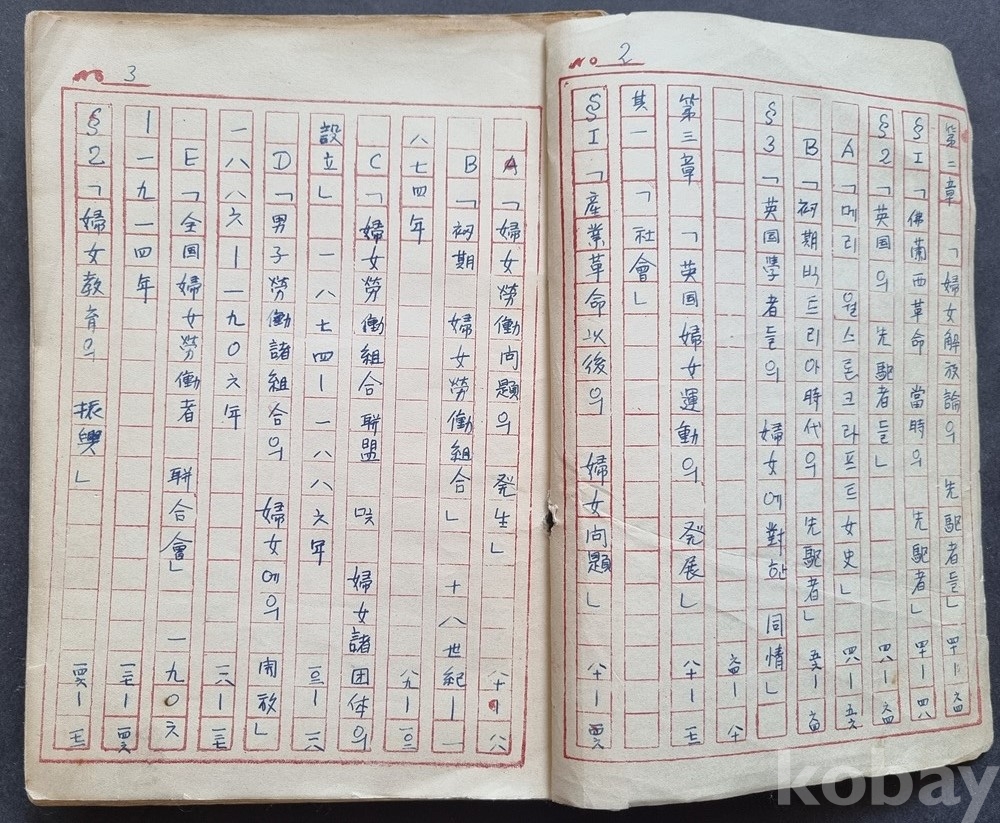 No 2
第二章 「婦女解放論의 先駆者들」 四十ー六四
§I 「佛蘭西革命 當時의 先駆者」 四十ー四八
§2 「英国의 先駆者들」 四八ー六四
A 「메리 월스톤크라프트女史」 四八ー五六
B 「初期빅트리아時代의 先駆者」 五六ー六四
§3 「英国学者들의 婦女에對한 同情」
六四ー八十
第三章 「英国婦女運動의 発展」 八十ー
其一 「社會」
§I 「産業革命以後의 婦女问題」 八十ー一四六
No 3
A 「婦女勞働问題의 発生」 八十ー
B 「初期 婦女勞働組合」 十八世紀ー一
八七四年 八九ー一〇三
C 「婦女勞働組合聯盟 및 婦女諸団体의
設立」 一八七四ー一八八六年 一〇三ー
D 「男子勞働諸組合의 婦女에의 開放」
一八八六ー一九〇六年
E 「全国婦女勞働者 聯合會」 一九〇六
ー一九一四年 一三七ー一四六
§2 「婦女敎育의 振興」 一四六ー
kobay